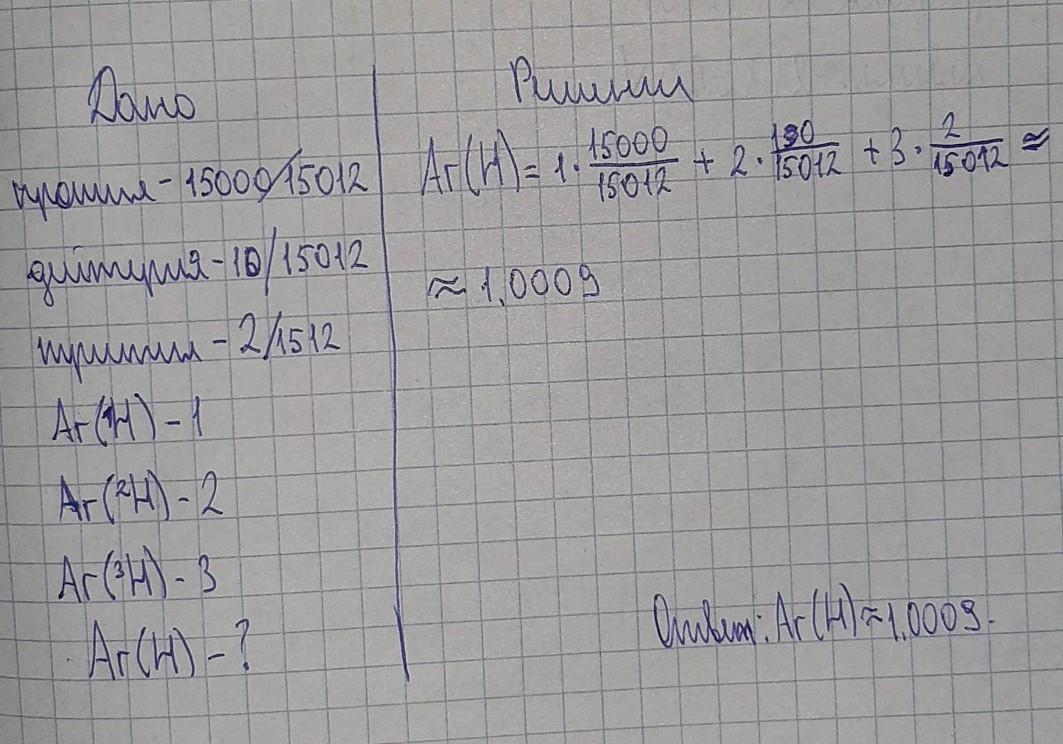 Дано
протия - 15000/15012
дейтерия - 10/15012
трития - 2/1512
Ar(¹H) - 1
Ar(²H) - 2
Ar(³H) - 3
Ar(H) - ?
Решение
Ar(H) = 1 · 15000/15012 + 2 · 10/15012 + 3 · 2/15012 ≈
≈ 1,0009
Ответ: Ar(H) ≈ 1,0009.